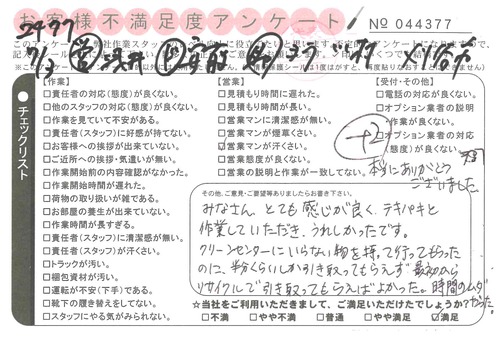 お客様不満足度アンケート
No 044377
チェックリスト
【作業】
□責任者の対応(態度)が良くない。
□他のスタッフの対応(態度)が良くない。
□作業を見ていて不安がある。
□責任者(スタッフ)に好感が持てない。
□お客様への挨拶が出来ていない。
□ご近所への挨拶・気遣いが無い。
□作業開始前の内容確認がなかった。
□作業開始時間が遅れた。
□荷物の取り扱いが雑である。
□お部屋の養生が出来ていない。
□作業時間が長すぎる。
□責任者(スタッフ)に清潔感が無い。
□責任者(スタッフ)が汗くさい。
□トラックが汚い。
□梱包資材が汚い。
□運転が不安(下手)である。
□靴下の履き替えをしてない。
□スタッフにやる気がみられない。
【営業】
□見積もり時間に遅れた。
□見積もり時間が長い。
□営業マンに清潔感が無い。
□営業マンが煙草くさい。
□営業マンが汗くさい。
□営業態度が良くない。
□営業の説明と作業が一致してない。
【受付・その他】
□電話の対応が良くない。
□オプション業者の説明
・作業が良くない。
□オプション業者の対応
(態度)が良くない。
+2
本当にありがとう
ございました
その他、ご意見・ご要望等ありましたらお書き下さい。
みなさん、とても感じが良く、テキパキと
作業していただき、うれしかったです。
クリーンセンターにいらない物を持って行ってもらった
のに、半分くらいしか引き取ってもらえず、最初から
リサイクルで引き取ってもらえばよかった。時間のムダ
だった。
☆当社をご利用いただきまして、ご満足いただけたでしょうか?
□不満 □やや不満 □普通 □やや満足 ☑満足